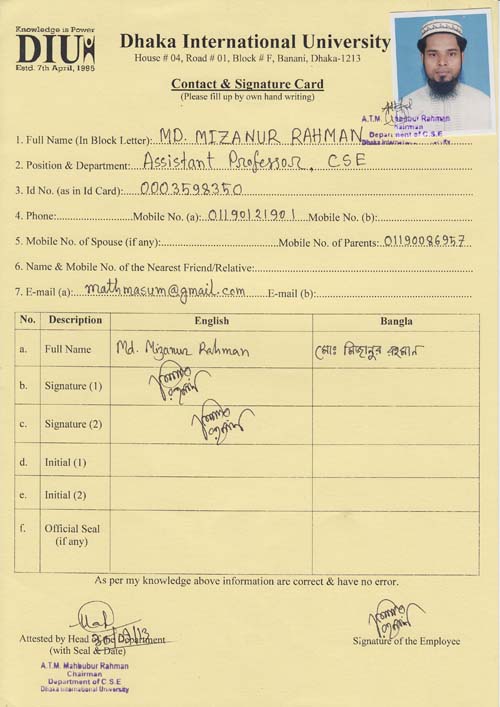 Knowledge is Power
DIU
Estd. 7th April, 1995
Dhaka International University
House # 04, Road # 01, Block # F, Banani, Dhaka-1213
Contact & Signature Card
(Please fill up by own hand writing)
A.T.M. Mahbubur Rahman
Chairman
Department of C.S.E
Dhaka International University
1. Full Name (In Block Letter): MD. MIZANUR RAHMAN
2. Position & Department: Assistant Professor, CSE
3. Id No. (as in Id Card): 0003598350
4. Phone: Mobile No. (a): 01190121901 Mobile No. (b):
5. Mobile No. of Spouse (if any): Mobile No. of Parents: 01190086957
6. Name & Mobile No. of the Nearest Friend/Relative:
7. E-mail (a): mathmasum@gmail.com E-mail (b):
No. Description English Bangla
a. Full Name Md. Mizanur Rahman মোঃ মিজানুর রহমান
b. Signature (1)
c. Signature (2)
d. Initial (1)
e. Initial (2)
f. Official Seal
(if any)
As per my knowledge above information are correct & have no error.
Attested by Head of the Department
(with Seal & Date)
Signature of the Employee
A.T.M. Mahbubur Rahman
Chairman
Department of C.S.E
Dhaka International University